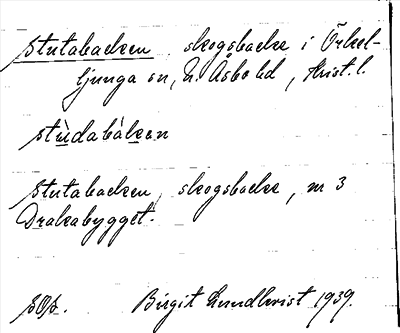 Stutabacken, skogsbacke i Örkel-
ljunga sn, N. Åsbo hd, Krist. l.
stùdabàken
Stutabacken, skogsbacke, nr 3
Drakabygget.
Birgit Lundkvist 1939.